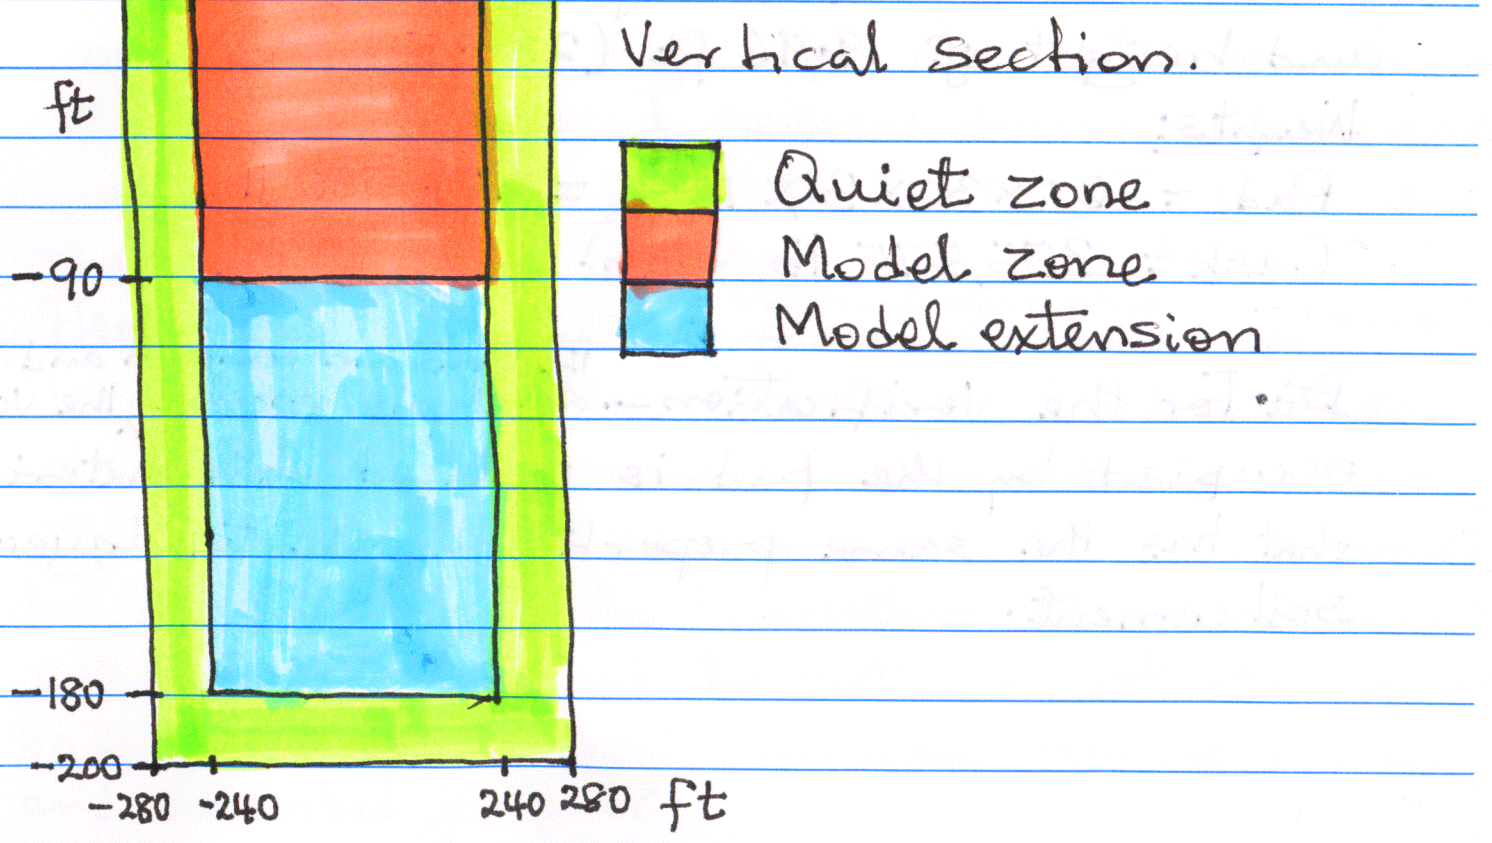 Vertical section.
ft
Quiet zone
Model zone
Model extension
-90
-180
-200
-280 -240 240 280 ft